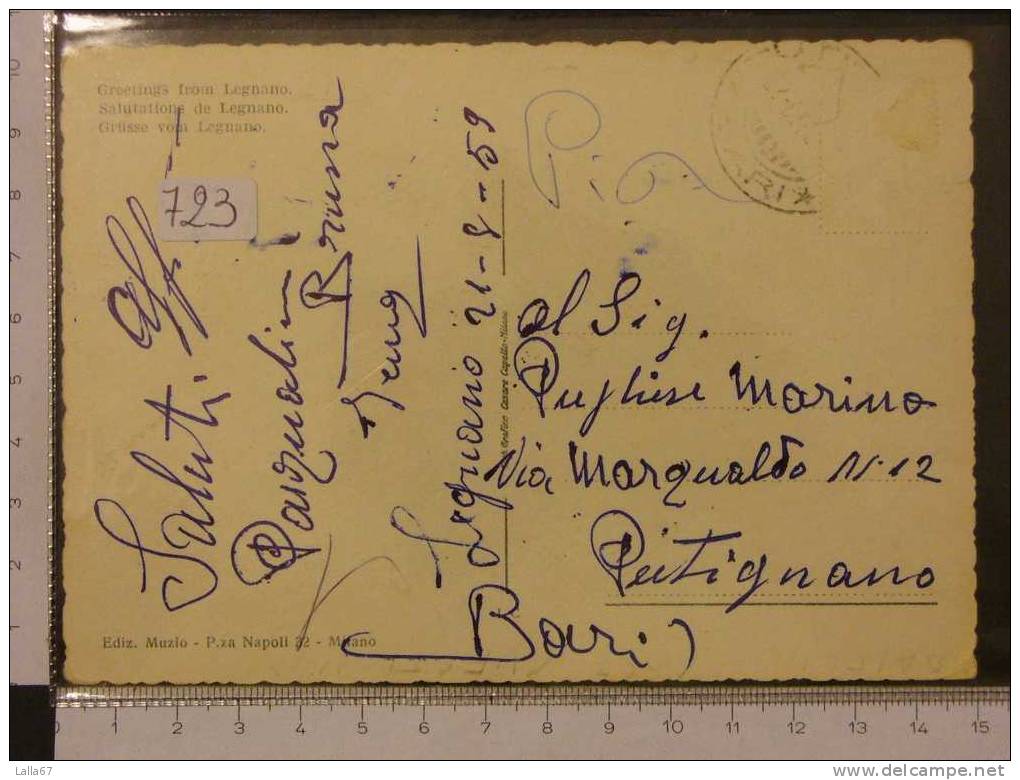 Greetings from Legnano.
Salutations de Legnano.
Grüsse vom Legnano.
723
Saluti Aff
Pasqualin
Bruna
Legnano 21-8-59
Pia
BARI
al Sig.
Pugliese Marino
Via Margualdo N. 12
Putignano
(Bari)
Grafico Cesare Capello-Milano
Ediz. Muzio - P.za Napoli 32 - Milano
10
9
8
7
6
5
4
3
2
1
0 1 2 3 4 5 6 7 8 9 10 11 12 13 14 15
Lalla67
delcampe.net